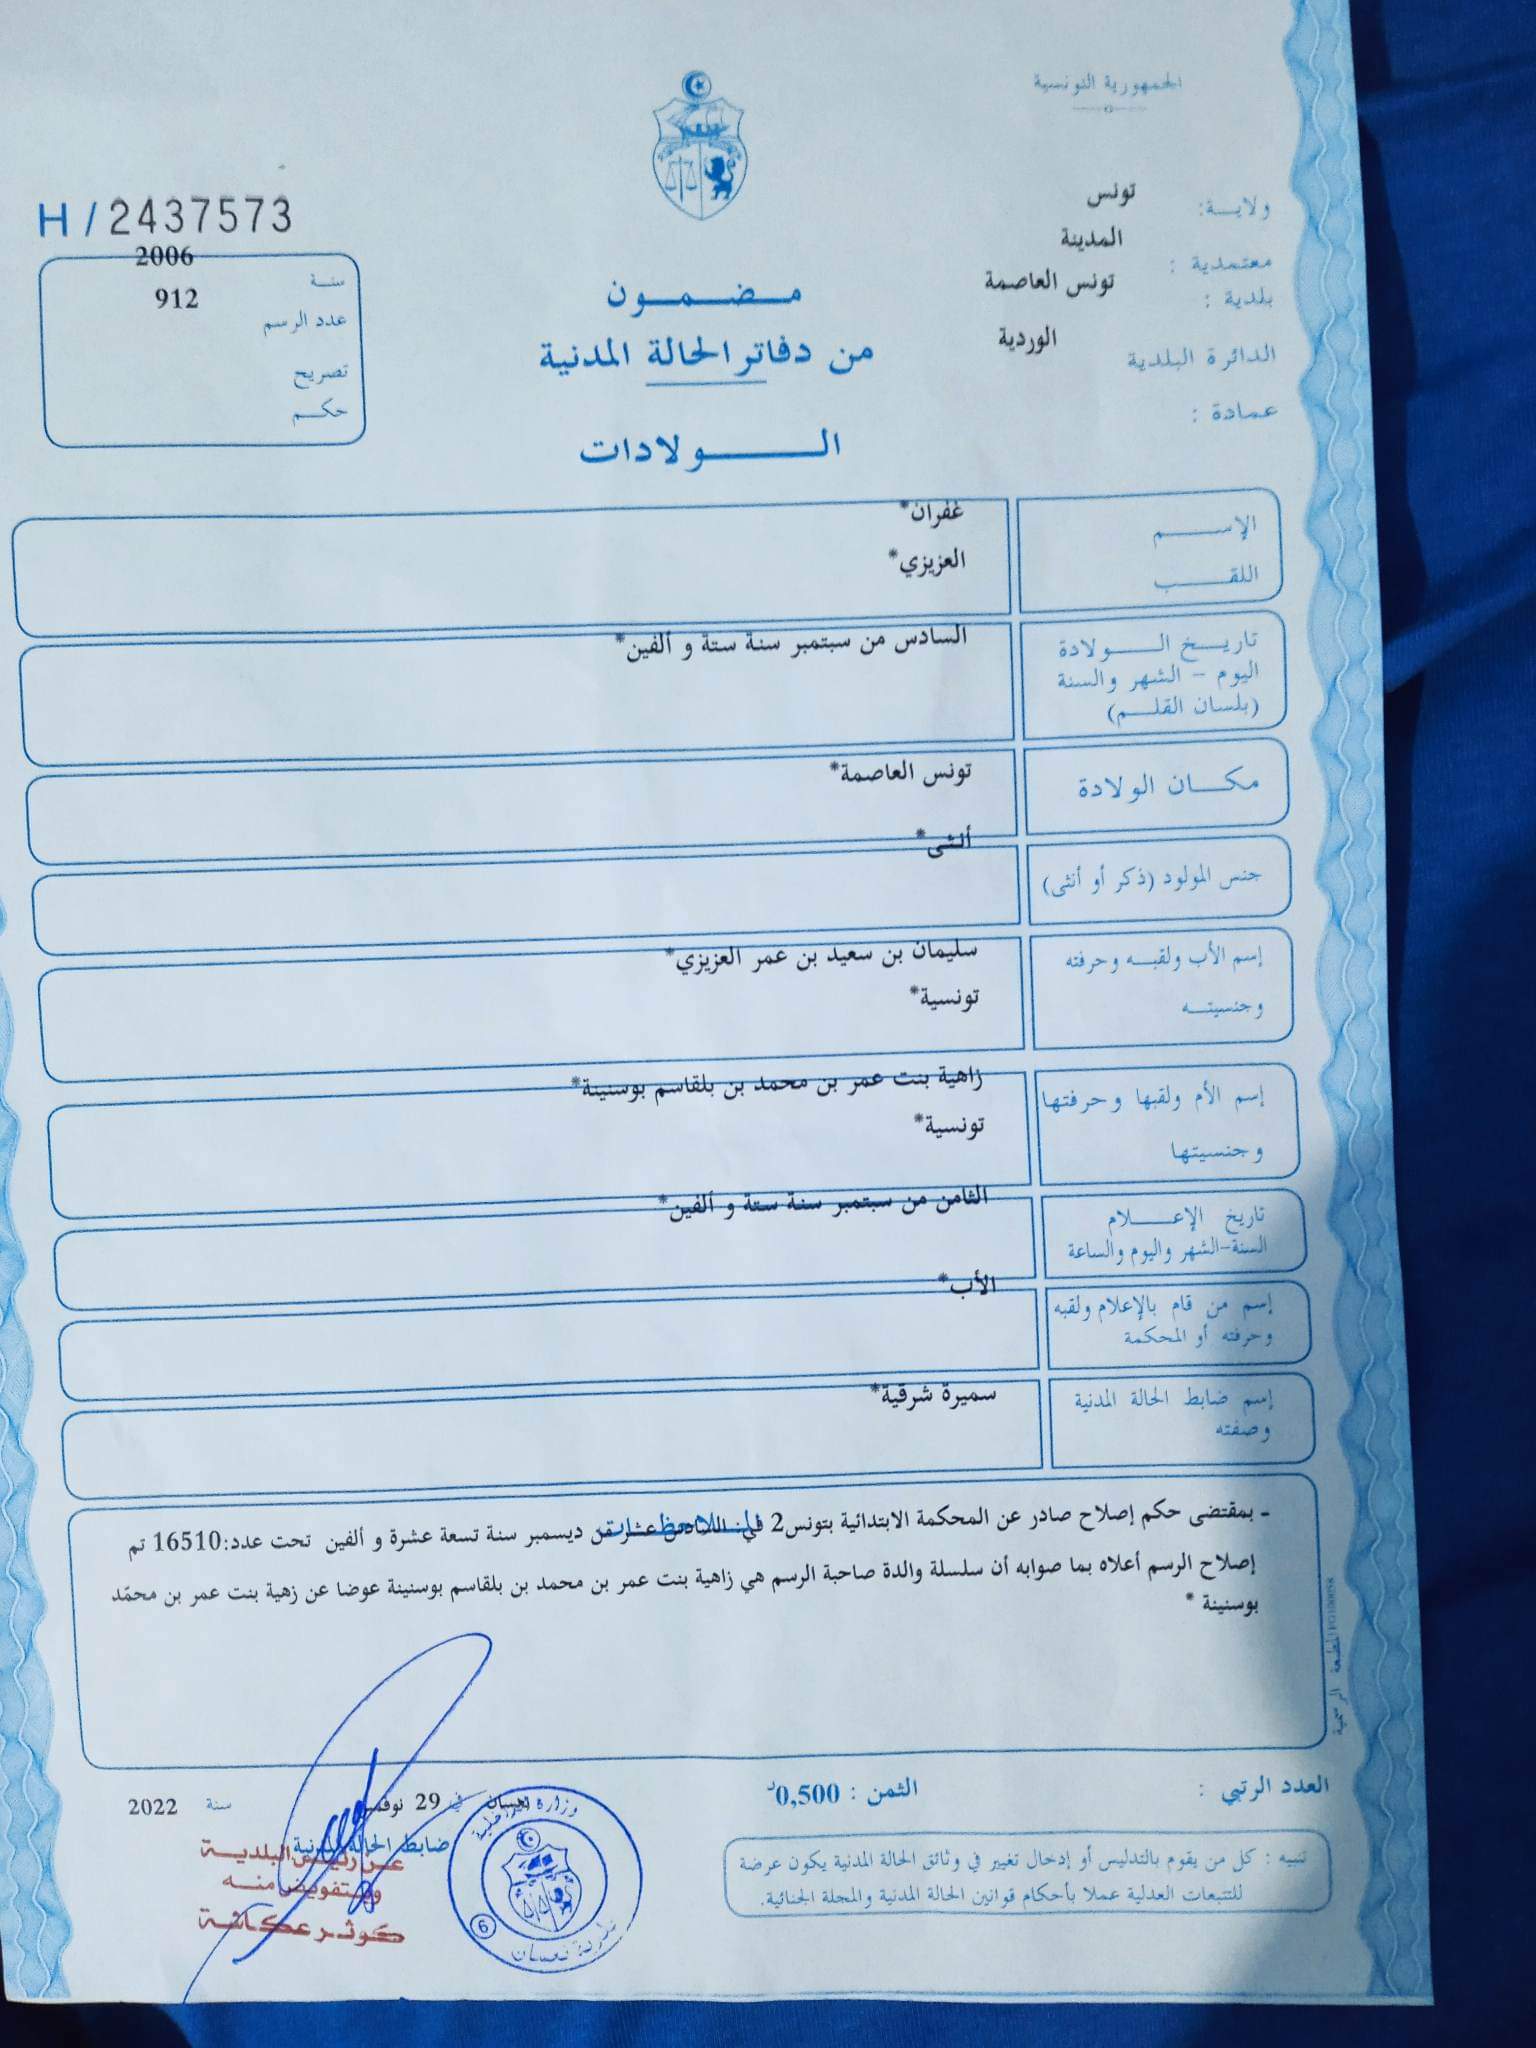 الجمهورية التونسية
ولايـة: تونس
معتمدية : المدينة
بلدية : تونس العاصمة
الدائرة البلدية الوردية
عمادة :
H / 2437573
سنـة 2006
عدد الرسم 912
تصريح
حكـم
مـضـمـون
من دفاتر الحالة المدنية
الـــولادات
الإســـم غفران*
اللقـــب العزيزي*
تاريـــخ الـــولادة السادس من سبتمبر سنة ستة و ألفين*
اليوم - الشهر والسنة
(بلسان القلـم)
مكــان الولادة تونس العاصمة*
جنس المولود (ذكر أو أنثى) أنثى*
إسم الأب ولقبـه وحرفته سليمان بن سعيد بن عمر العزيزي*
وجنسيتـه تونسية*
إسم الأم ولقبها وحرفتها زاهية بنت عمر بن محمد بن بلقاسم بوسنينة*
وجنسيتها تونسية*
تاريخ الإعــلام الثامن من سبتمبر سنة ستة و ألفين*
السنة-الشهر واليوم والساعة
إسم من قام بالإعلام ولقبه الأب*
وحرفته أو المحكمة
إسم ضابط الحالة المدنية سميرة شرقية*
وصفته
الملاحظــات
- بمقتضى حكم إصلاح صادر عن المحكمة الابتدائية بتونس2 في: السادس عشر من ديسمبر سنة تسعة عشرة و ألفين تحت عدد:16510 تم
إصلاح الرسم أعلاه بما صوابه أن سلسلة والدة صاحبة الرسم هي زاهية بنت عمر بن محمد بن بلقاسم بوسنينة عوضا عن زهية بنت عمر بن محمّد
بوسنينة *
العدد الرتبي :
الثمن : 0,500د
نعسان في 29 نوفمبر سنة 2022
ضابط الحالة المدنية
عن رئيس البلدية
وبتفويض منه
كوثر عكاشة
وزارة الداخلية
بلدية نعسان
6
تنبيه : كل من يقوم بالتدليس أو إدخال تغيير في وثائق الحالة المدنية يكون عرضة
للتتبعات العدلية عملا بأحكام قوانين الحالة المدنية والمجلة الجنائية.
المطبعة الرسمية